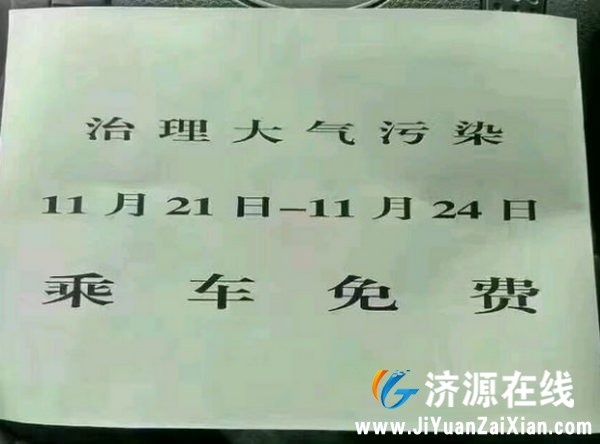 治理大气污染
11月21日-11月24日
乘车免费
济源在线
www.JiYuanZaiXian.com